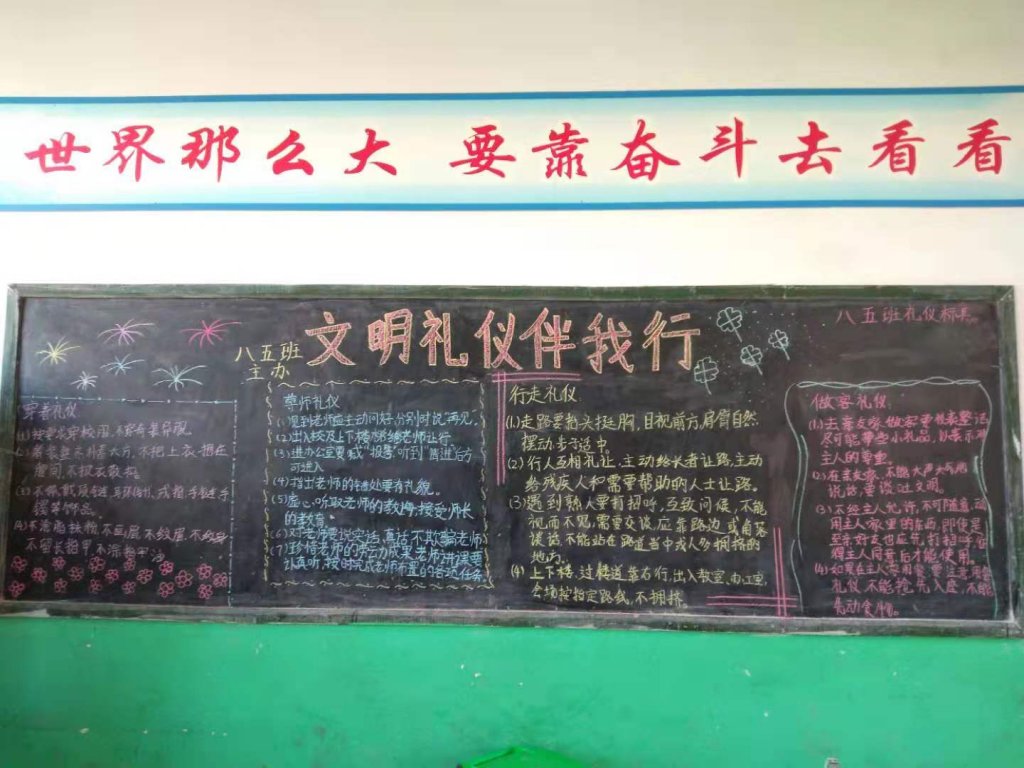 世界那么大 要靠奋斗去看看
文明礼仪伴我行
八五班
主办
八五班礼仪标兵
穿着礼仪
(1)按要求穿校服,不穿奇装异服。
不留长指甲
尊师礼仪
(1)见到老师应主动问好,分别时说"再见"。
(2)出入校及上下楼梯给老师让行。
(3)进办公室要喊"报告"听到"请进"后方
可进入
(4)指出老师的错处要有礼貌。
(5)虚心听取老师的教诲,接受师长
的教育。
(6)对老师要说实话,真话不欺骗老师
(7)珍惜老师的劳动成果老师讲课要
认真听,按时完成老师布置的各项任务
行走礼仪
(1).走路要抬头挺胸,目视前方,肩臂自然
摆动步子适中。
(2)行人互相礼让,主动给长者让路,主动
给残疾人和需要帮助的人士让路。
(3)遇到熟人要打招呼,互致问候,不能
视而不见,需要交谈应靠路边或角落
谈话,不能站在路道当中或人多拥挤的
地方。
(4)上下楼、过楼道靠右行,出入教室、办公室、
会场按指定路线,不拥挤。
做客礼仪
(1)去亲友家做客要仪表整洁
尽可能带些小礼品,以表示对
主人的尊重。
(2)在亲友家,不能大声大气的
说话,要谈吐文明。
(3)不经主人允许,不可随意动
用主人家里的东西,即使是
至亲好友也应先打招呼征
得主人同意后才能使用。
(4)如果在主人家用餐要注意用餐
礼仪,不能抢先入座,不能
先动食物。